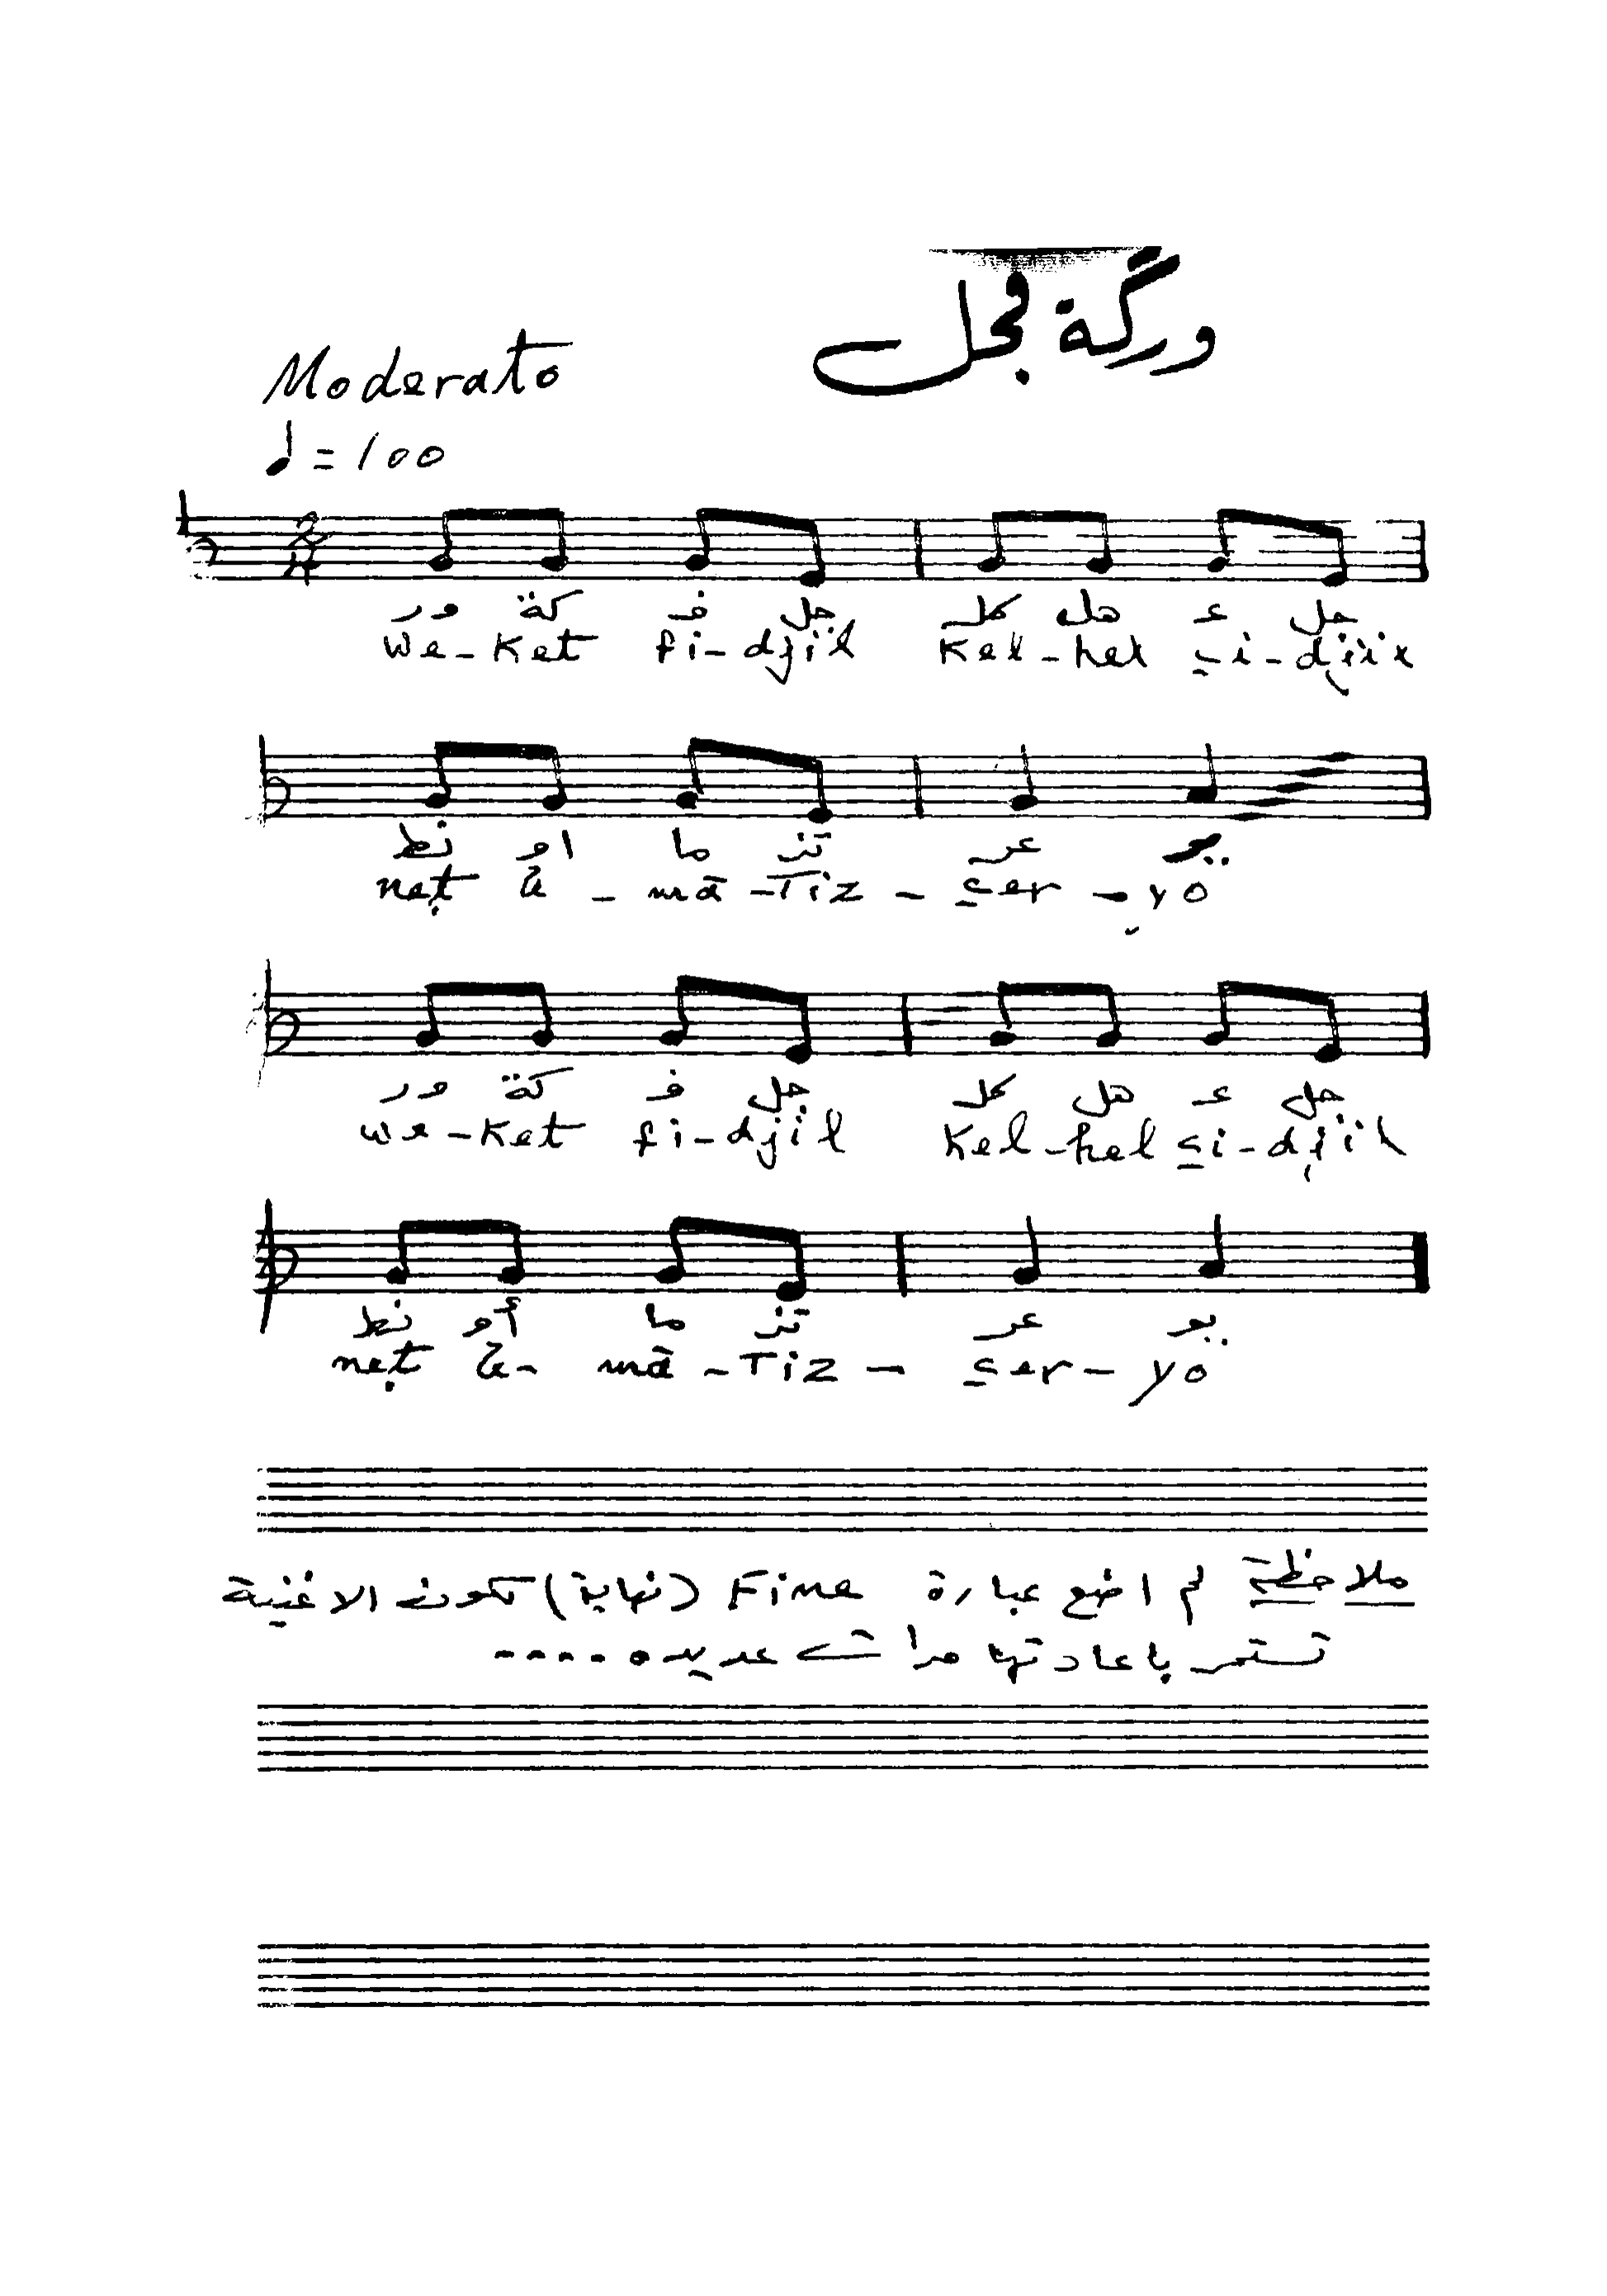 ورگة فجل
Moderato
♩ = 100
2/4
ور كة ف جل كل هل ع جل
We-Ket fi-djil Kel-hel ci-djil
نط او ما تز عر يو
neṭ ū - mā - Tiz - cer - yo
ور كة ف جل كل هل ع جل
we-Ket fi-djil Kel-hel ci-djil
نط أو ما تز عر يو
neṭ ū - mā - Tiz - cer - yo
ملاحظة لم اضع عبارة Fine (نهاية) لكون الاغنية
تستمر باعادتها مرات عديده ....